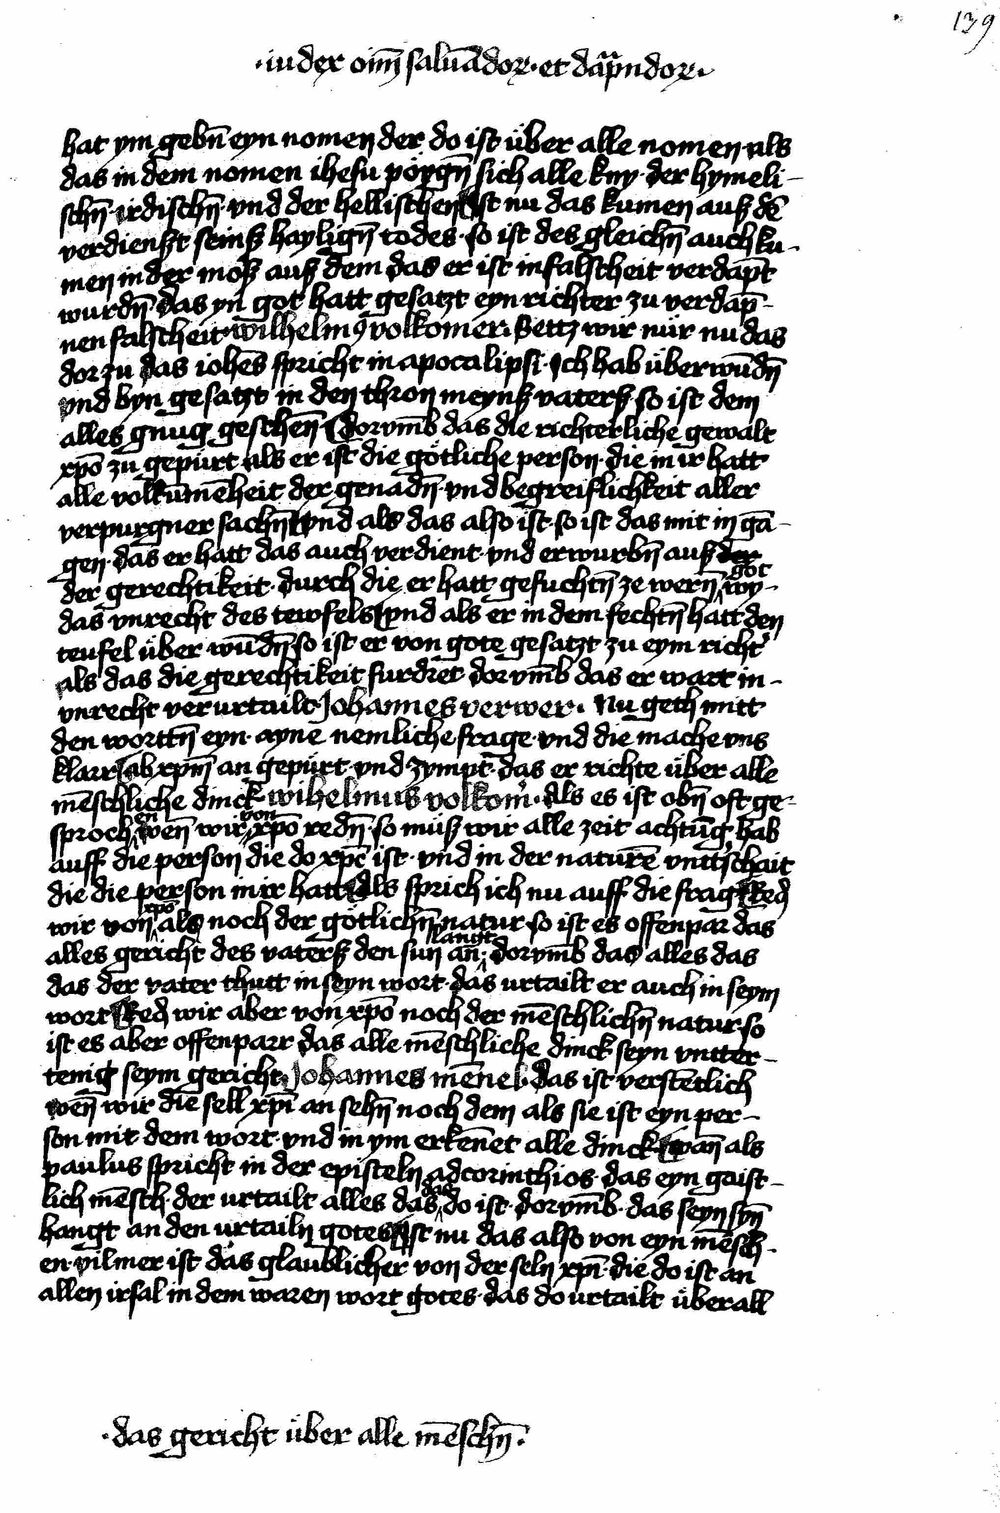 139
·iudex oim̄ saluādor·et dāpndor·
hat ym gebn̄ eyn nomen der do ist über alle nomen als
das in dem nomen ihesu pöygn̄ sich alle kny·der hymeli-
schn̄·irdischn̄·vnd der hellischen Ist nu das kumen auß dē
verdienßt seinß haylign̄ todes·so ist des gleichn̄ auch ku-
men in der moß auß dem das er ist in falscheit verdāpt
wurdn̄·das yn got hatt gesatzt eyn richter zu verdāp-
nen falscheit·wilhelmꝰ volkomer·Settz wir nür nu das
dor zu das iohēs spricht in apocalipsi·Ich hab überwūdn̄
vnd byn gesatzt in den thron meynß vaterß so ist dem
alles gnug geschēn dorvm̄b das die richterliche gewalt
xpō zu gepürt als er ist die götliche person·die in ir hatt
alle volkūmēheit der genadn̄·vnd begreiflichkeit aller
verpurgner sachn̄ vnd als das also ist·so ist das mit in gā-
gen·das er hatt das auch verdient·vnd erwurbn̄ auß der
der gerechtikeit·durch die er hatt gefuchtn̄ ze wern̄ got wy-
das vnrecht des tewfels vnd als er in dem fechtn̄ hatt den
teufel über wūdn̄ so ist er von gote gesatzt zu eym richt̓
als das die gerechtikeit furdret dorvm̄b das er wart in-
vnrecht verurtailt·Johannes verwer·Nu geth mitt
den worttn̄ eyn·ayne nemliche frage·vnd die mache vns
klarr ab xpm̄ an gepürt·vnd zympt·das er richte über alle
mēschliche dinck·wilhelmus volkom̓·Als es ist obn̄ oft ge-
sprochen wen̄ wir von xpō redn̄·so müß wir alle zeit achtūg hab
auff die person die do xpc̄ ist·vnd in der naturē vntt̓schait
die die person in ir hatt Als sprich ich nu auff die frag Red
wir von xpō als noch der götlichn̄ natur·so ist es offenpar das
alles gericht des vaterß den sun an langt·dorvm̄b das alles das
das der vater thutt in seyn wort·das urtailt er auch in seym
wort Red wir aber von xpō noch der mēschlichn̄ natur so
ist es aber offenparr das alle mēschliche dinck seyn vntter-
tenig seym gericht Johannes mēnel·das ist verstētlich
wen̄ wir die sell xpī an sehn̄ noch dem als sie ist eyn per-
son mit dem wort·vnd in ym erkēnet alle dinck wan̄ als
paulus spricht in der episteln adcorinthios·das eyn gaist-
lich mēsch·der urtailt alles das das do ist·dorvm̄b·das seyn syn̄
hangt an den urtailn gotes Ist nu das also von eyn mēsch-
en·vilmer ist das glaublicher von der seln xpī·die do ist an
allen irsal in dem waren wort gotes·das do urtailt überall
·das gericht über alle mēschn̄·